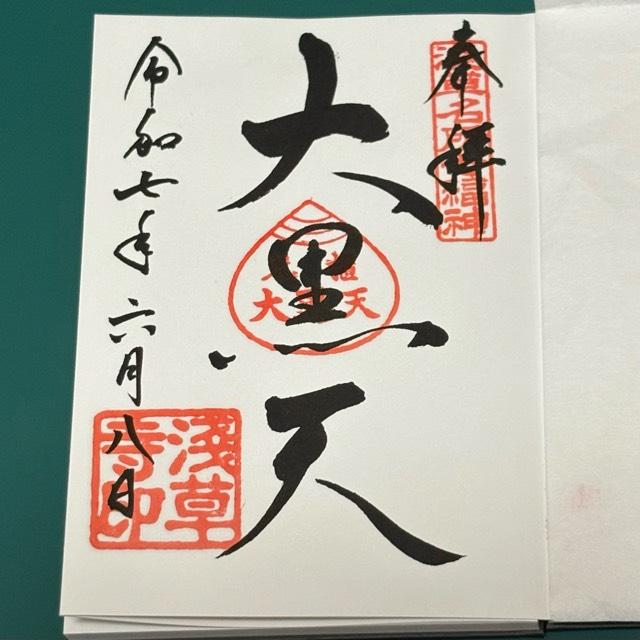 奉拝
浅草名所七福神
大黒天
大黒天
令和七年六月八日
浅草寺印